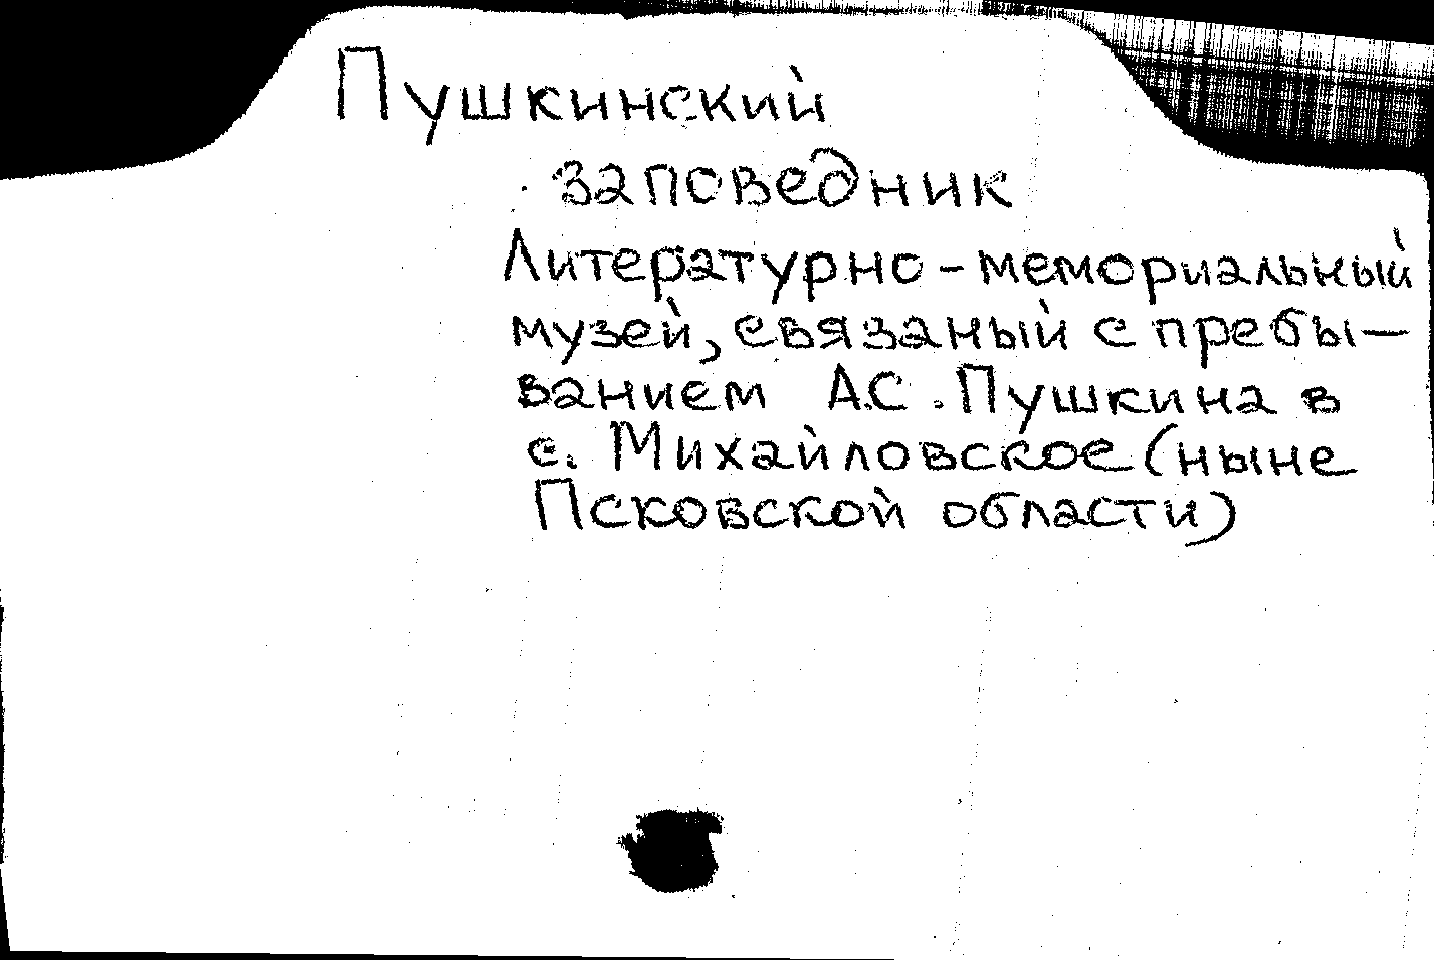 Пушкинский
заповедник
Литературно-мемориальный
музей, связаный с пребы-
ванием А.С. Пушкина в
с. Михайловское (ныне
Псковской области)